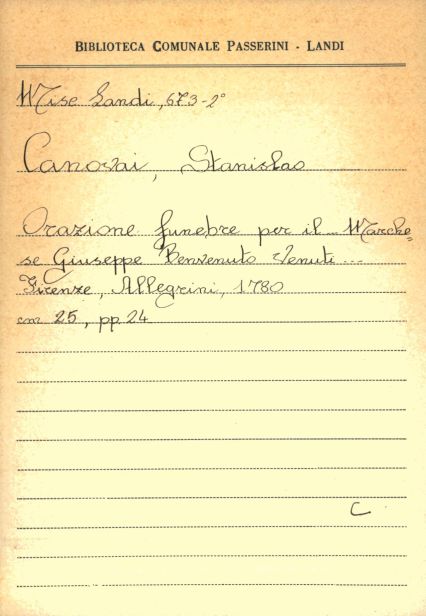 BIBLIOTECA COMUNALE PASSERINI - LANDI
Misc Landi, 673-2°
Canovai, Stanislao
Orazione funebre per il ... Marche=
se Giuseppe Benvenuto Venuti ...
Firenze, Allegrini, 1780
cm 25, pp. 24
C